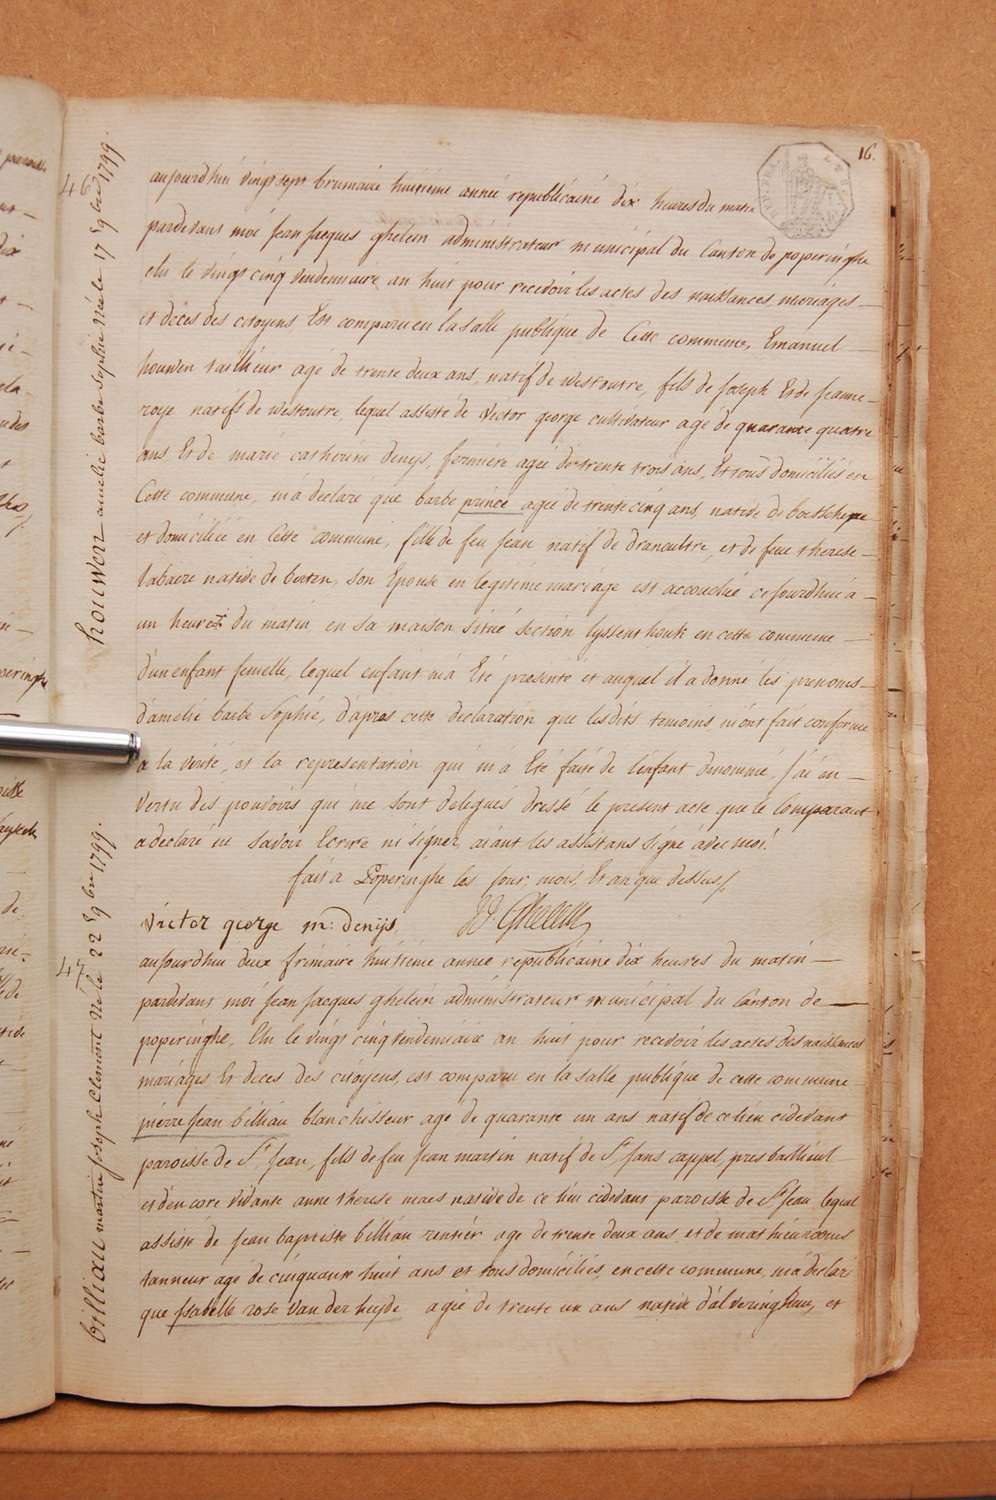 16.
46
houwen amelie barbe sophie Née le 17 9bre 1799.
aujourdhui vingt sept brumaire huitieme année republicaine dix heures du matin
pardevant moi Jean Jacques ghelein administrateur municipal du Canton de poperinghe
elu le vingt cinq vendemiaire an huit pour recevoir les actes des naissances mariages
et décès des citoyens, Est comparu en la salle publique de Cette commune, Emanuel
houwen tailleur agé de trente deux ans, natif de westoutre, fils de Joseph Et de Jeanne
roye natifs de westoutre, lequel assisté de victor george cultivateur agé de quarante quatre
ans Et de marie catherine denijs, fermière agée de trente trois ans, Et tous domiciliés en
Cette commune, m'a declaré que barbe prince agée de trente cinq ans, native de boeschepe
et domiciliée en Cette commune, fille de feu Jean natif de dranoultre, et de feue therese
labaere native de berten, son Epouse en legitime mariage est accouchée cejourdhui a
un heure du matin, en sa maison situé section lyssenthouk en cette commune
d'un enfant femelle, lequel enfant m'a Eté présenté et auquel il a donné les prenoms
d'amelie barbe Sophie, d'apres cette declaration que lesdits temoins m'ont fait conforme
a la verité, et la representation qui m'a Eté faite de l'enfant denommé, J'ai en
vertu des pouvoirs qui me sont delegués dressé le present acte que le Comparant
a declaré ne savoir Ecrire ni signer, aiant les assistans signé avec moi.
fait a Poperinghe les jour, mois, Et an que dessus /
victor george m: denijs JJ. Ghelein
47
billiau martin joseph Clement Né le 22 9bre 1799.
aujourdhui deux frimaire huitieme année republicaine dix heures du matin
pardevant moi Jean Jacques ghelein administrateur municipal du Canton de
poperinghe, Elu le vingt cinq vendemiaire an huit pour recevoir les actes des naissances
mariages, Et deces des citoyens, est comparu en la salle publique de cette commune
pierre Jean billiau blanchisseur agé de quarante un ans natif de ce lieu cidevant
paroisse de St. Jean, fils de feu Jean martin natif de St. Jans cappel, pres bailleul
et d'encore vivante anne therese maes native de ce lieu cidevant paroisse de St Jean, lequel
assisté de Jean baptiste billiau rentier agé de trente deux ans, et de mathieu
tanneur agé de cinquante huit ans et tous domiciliés, en cette commune, m'a declaré
que Isabelle rose van der heyde agée de trente un ans native d'alveringhem, et